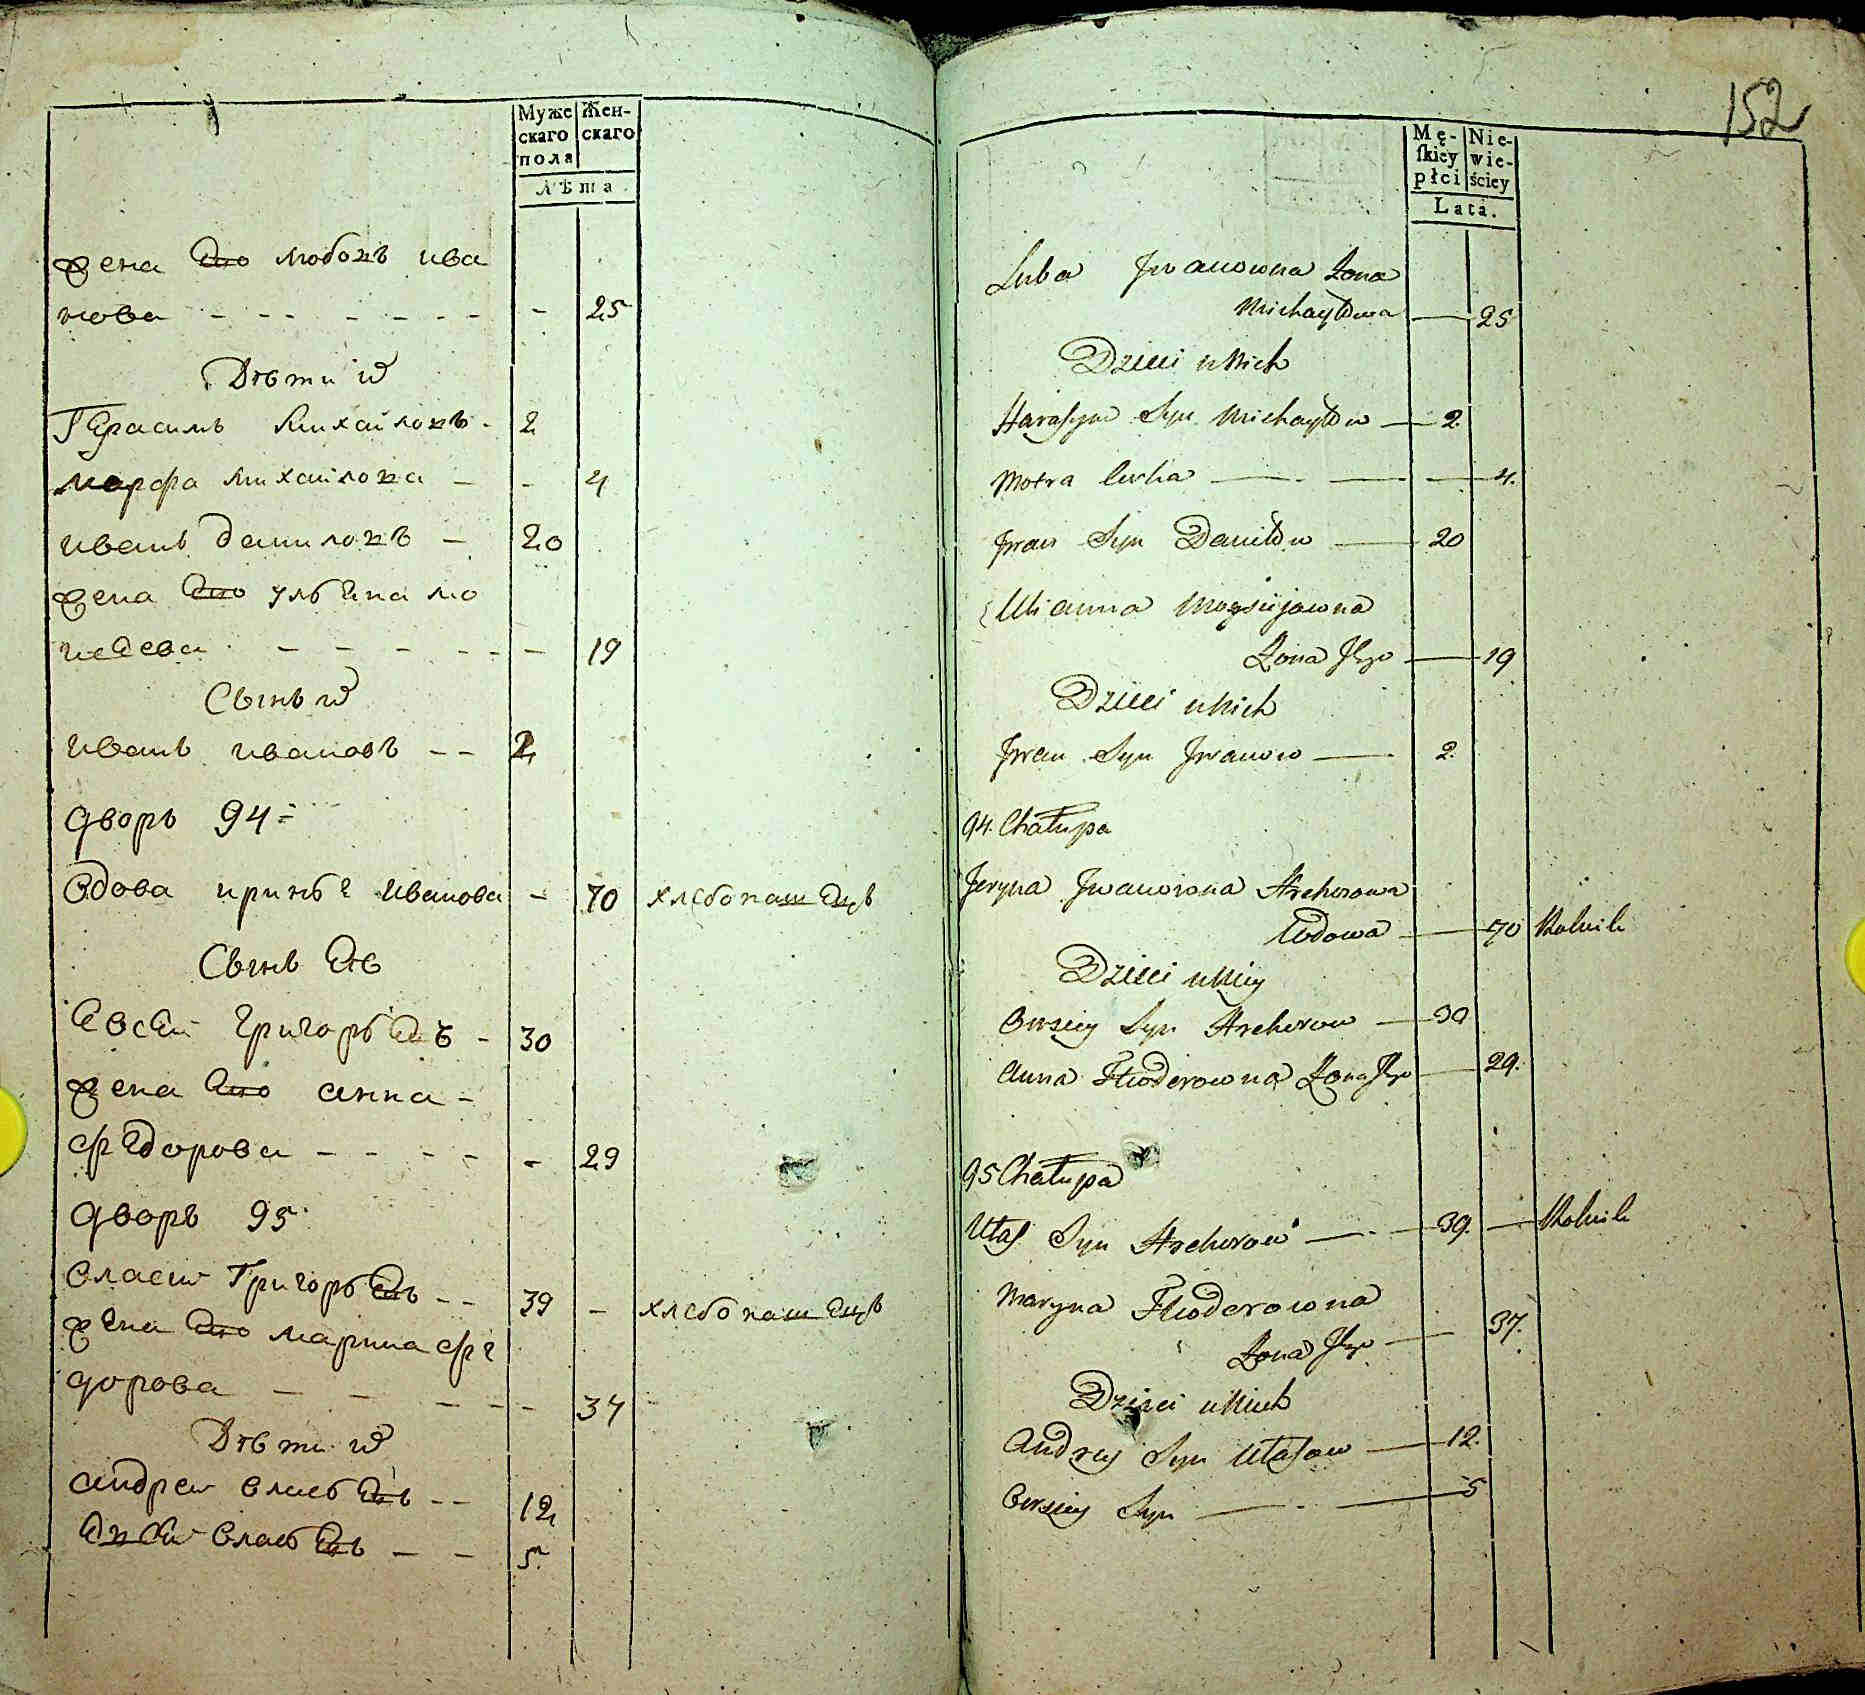 Муже
скаго
пола
Жен-
скаго
Лѣта
жена Его любовь ива
нова - - - - - - - 25
Дѣти их
Герасимъ Михайловъ - 2
марфа Михайлова - - 4
иванъ даниловъ - 20
жена Его ульѣна мо
исеева - - - - - - 19
Сынъ их
иванъ ивановъ - - 2
дворъ 94 =
вдова ириньѣ иванова - 70 хлебопашЕцъ
Сынъ Еѣ
ЕвсЕй григорьЕвъ - 30
жена Его анна -
фЕдорова - - - - - 29
дворъ 95
власий ГригорьЕвъ - - 39 - хлебопашЕцъ
жЕна Его марина фе
дорова - - - - - 37
Дѣти их
андрей власьЕвъ - - 12
ЕвсЕй власьЕвъ - - 5
152
Mę-
skiey
płci
Nie-
wie-
ściey
Lata.
Luba Jwanowna Zona
Michayłowa — 25
Dzieci u Nich
Harasym Syn Michayłow — 2
Motra Curka — — — 4.
Jwan Syn Daniłow — 20
Ulianna Moysiijowna
Zona Jego — 19
Dzieci u Nich
Jwan Syn Jwanow — 2.
94. Chałupa
Jeryna Jwanowna Hrehorowa
Wdowa — 70 Rolnik
Dzieci u Niey
Owsiey Syn Hrehorow — 30
Anna Fiodorowna Zona Jego — 29.
95 Chałupa
Ułas Syn Hrehorow — - — 39. — Rolnik
Maryna Fiodorowna
Zona Jego — 37.
Dzieci u Nich
Andrey Syn Ułasow — 12.
Owsiey Syn — - — 5